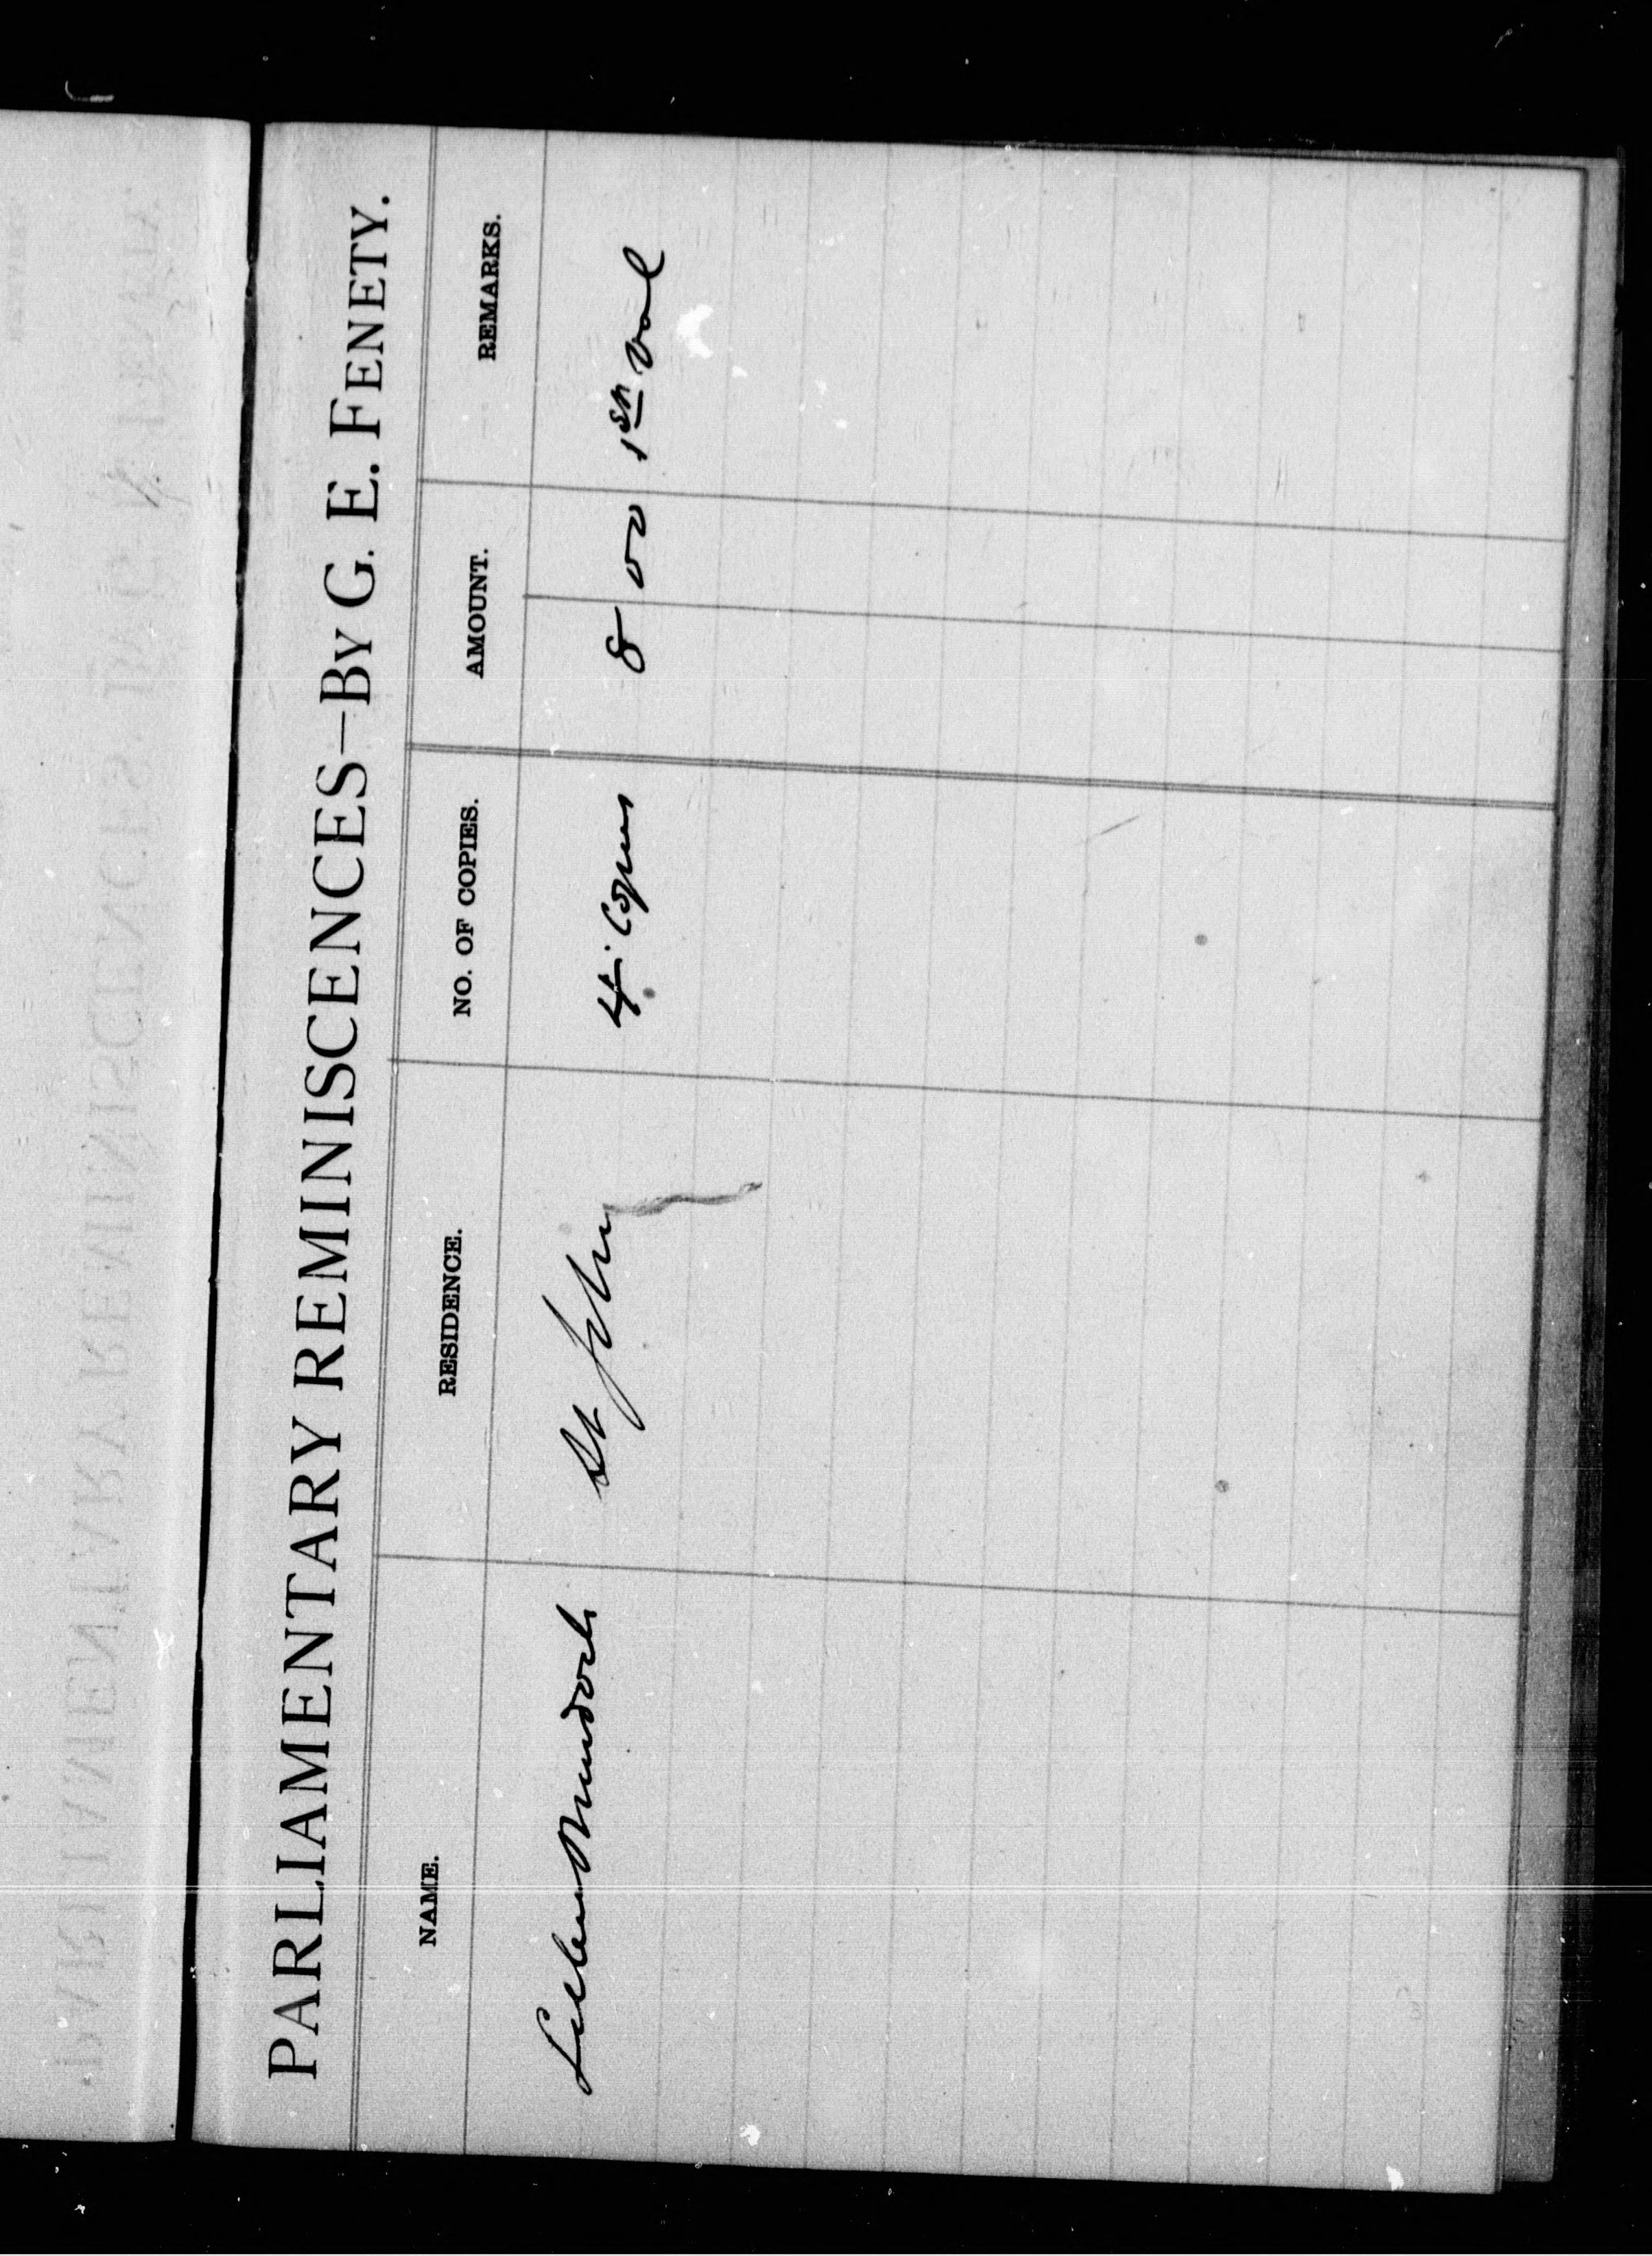 PARLIAMENTARY REMINISCENCES—BY G. E. FENETY.
NAME. RESIDENCE. NO. OF COPIES. AMOUNT. REMARKS.
Murdoch St John 4 Copies 8 00 1st vol